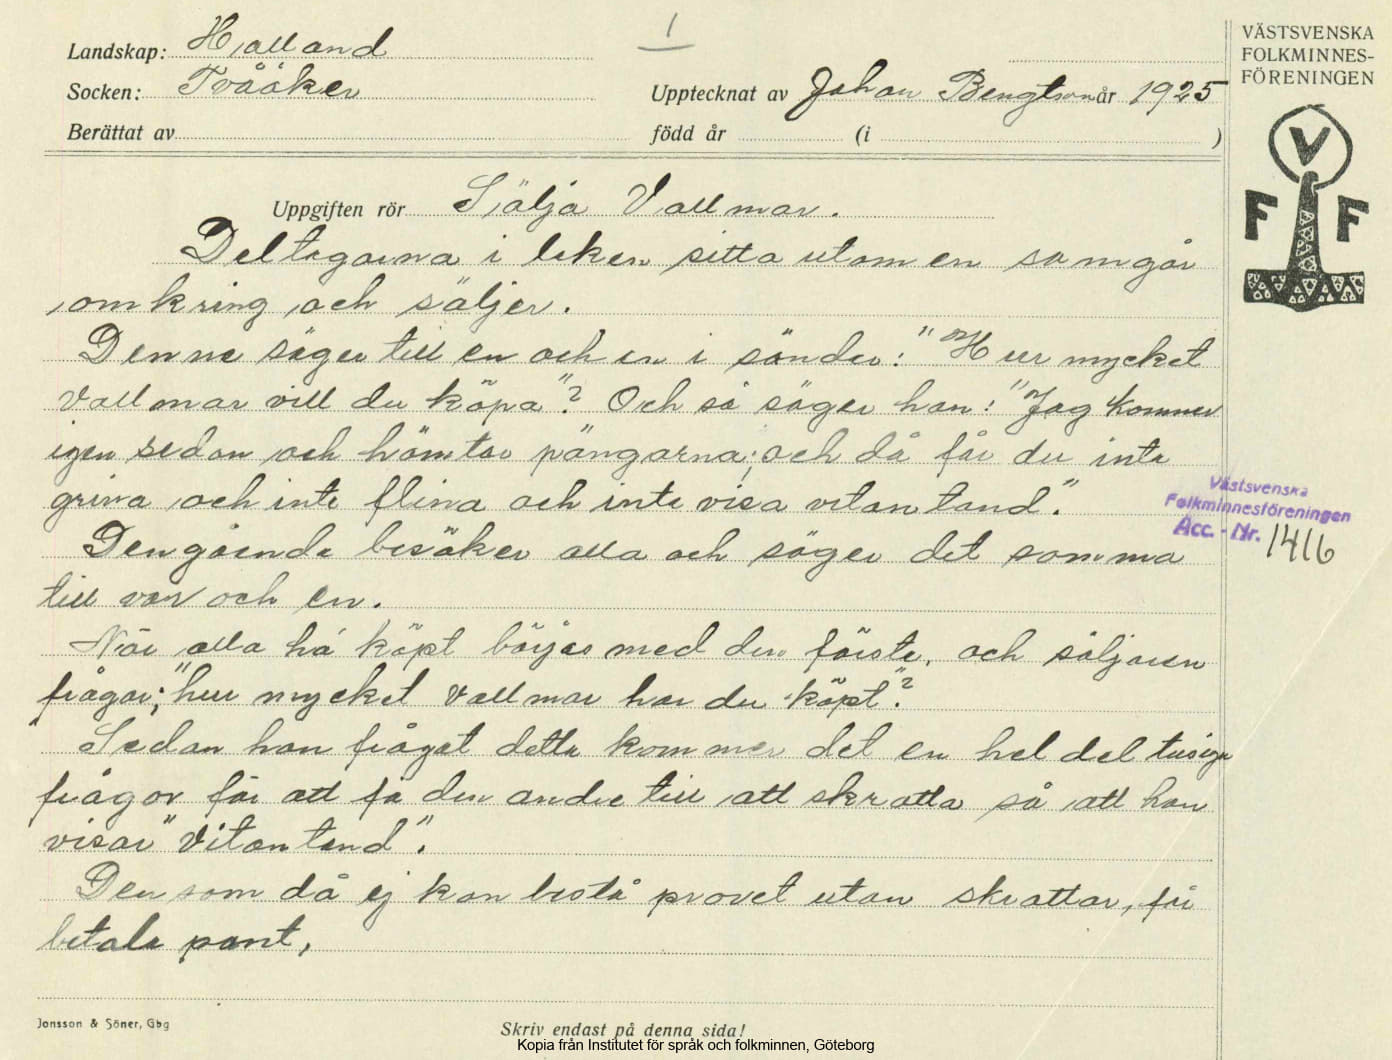 1
Landskap: Halland
Socken: Tvååker
Upptecknat av Johan Bengtson år 1925
Berättat av
född år (i )
VÄSTSVENSKA
FOLKMINNES-
FÖRENINGEN
V
F F
Uppgiften rör Sälja Vallmar.
Deltagarna i leken sitta utom en som går
omkring och säljer.
Denne säger till en och en i sänder: "Hur mycket
Vallmar vill du köpa"? Och så säger han: "Jag kommer
igen sedan och hämtar pängarna; och då får du inte
grina och inte flina och inte visa vitan tand".
Den gående besöker alla och säger det samma
till var och en.
När alla ha köpt börjas med den förste, och säljaren
frågar; "hur mycket vallmar har du köpt"?
Sedan han frågat detta kommer det en hel del tusiga
frågor för att få den andre till att skratta så att han
visar "Vitan tand".
Den som då ej kan bestå provet utan skrattar, får
betala pant,
Västsvenska
Folkminnesföreningen
Acc. - Nr. 1416
Jonsson & Söner, Gbg
Skriv endast på denna sida!
Kopia från Institutet för språk och folkminnen, Göteborg